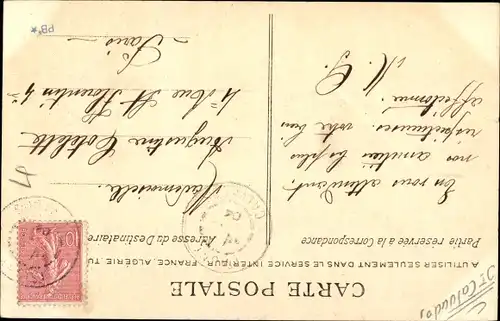 CARTE POSTALE
A UTILISER SEULEMENT DANS LE SERVICE INTÉRIEUR (FRANCE, ALGÉRIE, TU
Partie réservée à la Correspondance
Adresse du Destinataire
En vous attendant
nos amitiés les plus
respectueuses votre bien
affectionné
Mademoiselle
Augustine
4 Rue St Florentin 4
Paris
PB*